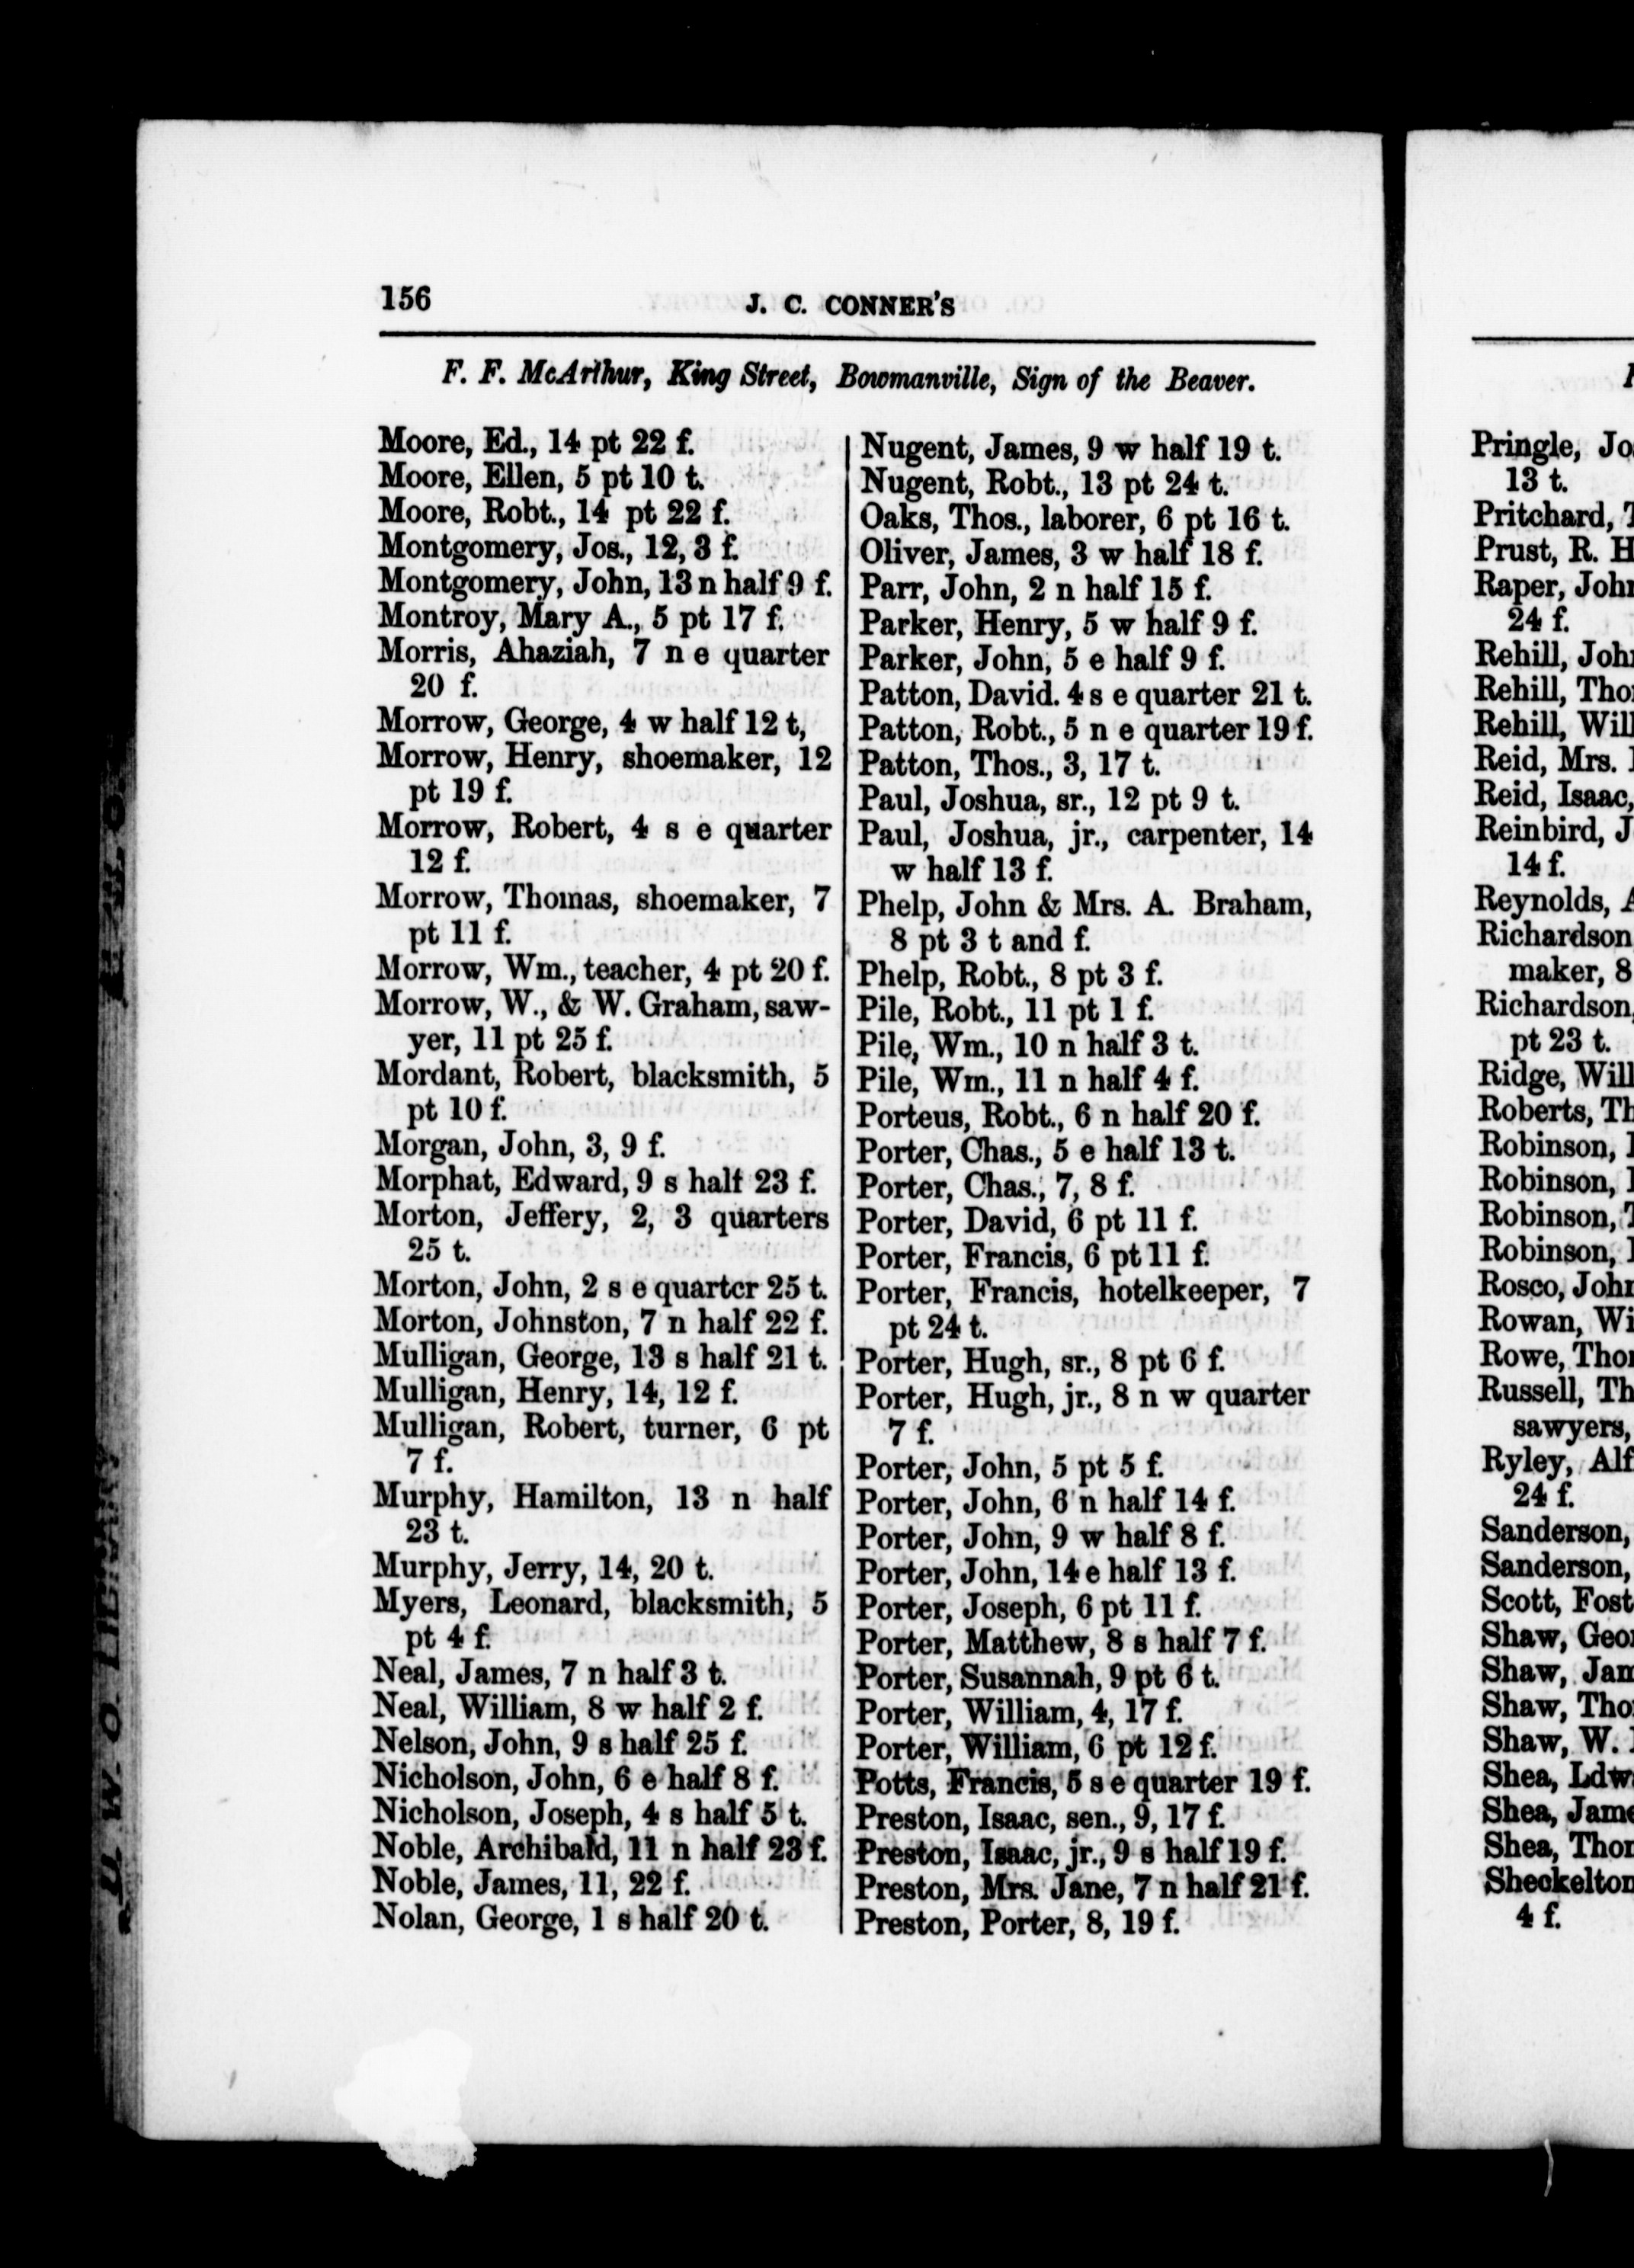 156
J. C. CONNER'S
F. F. McArthur, King Street, Bowmanville, Sign of the Beaver.
Moore, Ed., 14 pt 22 f.
Moore, Ellen, 5 pt 10 t.
Moore, Robt., 14 pt 22 f.
Montgomery, Jos., 12, 3 f.
Montgomery, John, 13 n half 9 f.
Montroy, Mary A., 5 pt 17 f.
Morris, Ahaziah, 7 n e quarter
20 f.
Morrow, George, 4 w half 12 t,
Morrow, Henry, shoemaker, 12
pt 19 f.
Morrow, Robert, 4 s e quarter
12 f.
Morrow, Thomas, shoemaker, 7
pt 11 f.
Morrow, Wm., teacher, 4 pt 20 f.
Morrow, W., & W. Graham, saw-
yer, 11 pt 25 f.
Mordant, Robert, blacksmith, 5
pt 10 f.
Morgan, John, 3, 9 f.
Morphat, Edward, 9 s half 23 f.
Morton, Jeffery, 2, 3 quarters
25 t.
Morton, John, 2 s e quarter 25 t.
Morton, Johnston, 7 n half 22 f.
Mulligan, George, 13 s half 21 t.
Mulligan, Henry, 14, 12 f.
Mulligan, Robert, turner, 6 pt
7 f.
Murphy, Hamilton, 13 n half
23 t.
Murphy, Jerry, 14, 20 t.
Myers, Leonard, blacksmith, 5
pt 4 f.
Neal, James, 7 n half 3 t.
Neal, William, 8 w half 2 f.
Nelson, John, 9 s half 25 f.
Nicholson, John, 6 e half 8 f.
Nicholson, Joseph, 4 s half 5 t.
Noble, Archibald, 11 n half 23 f.
Noble, James, 11, 22 f.
Nolan, George, 1 s half 20 t.
Nugent, James, 9 w half 19 t.
Nugent, Robt., 13 pt 24 t.
Oaks, Thos., laborer, 6 pt 16 t.
Oliver, James, 3 w half 18 f.
Parr, John, 2 n half 15 f.
Parker, Henry, 5 w half 9 f.
Parker, John, 5 e half 9 f.
Patton, David. 4 s e quarter 21 t.
Patton, Robt., 5 n e quarter 19 f.
Patton, Thos., 3, 17 t.
Paul, Joshua, sr., 12 pt 9 t.
Paul, Joshua, jr., carpenter, 14
w half 13 f.
Phelp, John & Mrs. A. Braham,
8 pt 3 t and f.
Phelp, Robt., 8 pt 3 f.
Pile, Robt., 11 pt 1 f.
Pile, Wm., 10 n half 3 t.
Pile, Wm., 11 n half 4 f.
Porteus, Robt., 6 n half 20 f.
Porter, Chas., 5 e half 13 t.
Porter, Chas., 7, 8 f.
Porter, David, 6 pt 11 f.
Porter, Francis, 6 pt 11 f.
Porter, Francis, hotelkeeper, 7
pt 24 t.
Porter, Hugh, sr., 8 pt 6 f.
Porter, Hugh, jr., 8 n w quarter
7 f.
Porter, John, 5 pt 5 f.
Porter, John, 6 n half 14 f.
Porter, John, 9 w half 8 f.
Porter, John, 14 e half 13 f.
Porter, Joseph, 6 pt 11 f.
Porter, Matthew, 8 s half 7 f.
Porter, Susannah, 9 pt 6 t.
Porter, William, 4, 17 f.
Porter, William, 6 pt 12 f.
Potts, Francis, 5 s e quarter 19 f.
Preston, Isaac, sen., 9, 17 f.
Preston, Isaac, jr., 9 s half 19 f.
Preston, Mrs. Jane, 7 n half 21 f.
Preston, Porter, 8, 19 f.
Pringle,
13 t.
Pritchard,
Prust, R.
Raper,
24 f.
Rehill,
Rehill,
Rehill,
Reid, Mrs.
Reid, Isaac,
Reinbird,
14 f.
Reynolds,
Richardson
maker, 8
Richardson,
pt 23 t.
Ridge,
Roberts,
Robinson,
Robinson,
Robinson,
Robinson,
Rosco,
Rowan,
Rowe,
Russell,
sawyers,
Ryley,
24 f.
Sanderson,
Sanderson,
Scott,
Shaw,
Shaw,
Shaw,
Shaw, W.
Shea,
Shea,
Shea,
Sheckelton
4 f.
U. W. O. LIBRARY